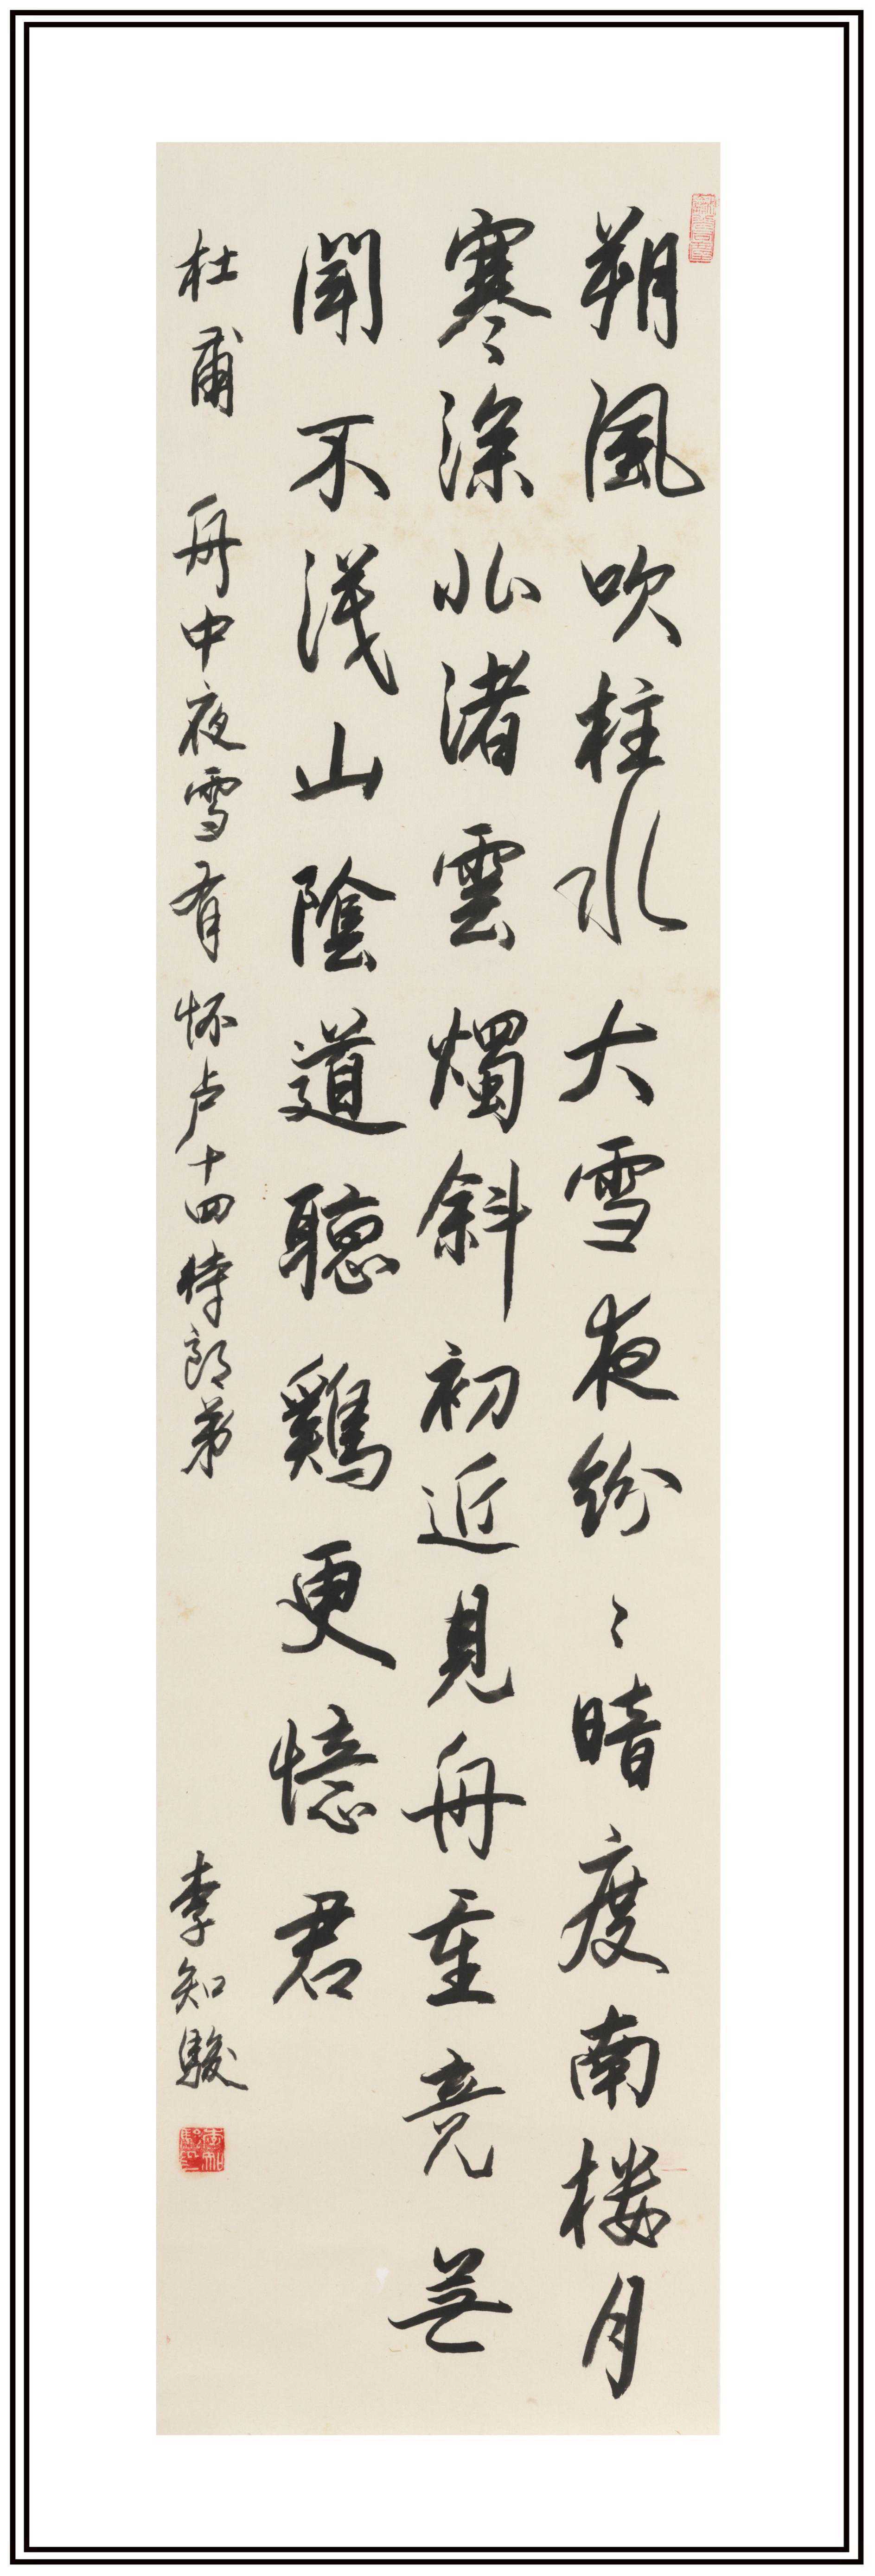 朔風吹柱水大雪夜紛〻暗度南楼月
寒深北渚雲燭斜初近見舟重竟無
聞不識山陰道聽雞更憶君
杜甫 舟中夜雪有怀卢十四侍郎弟 李知駿